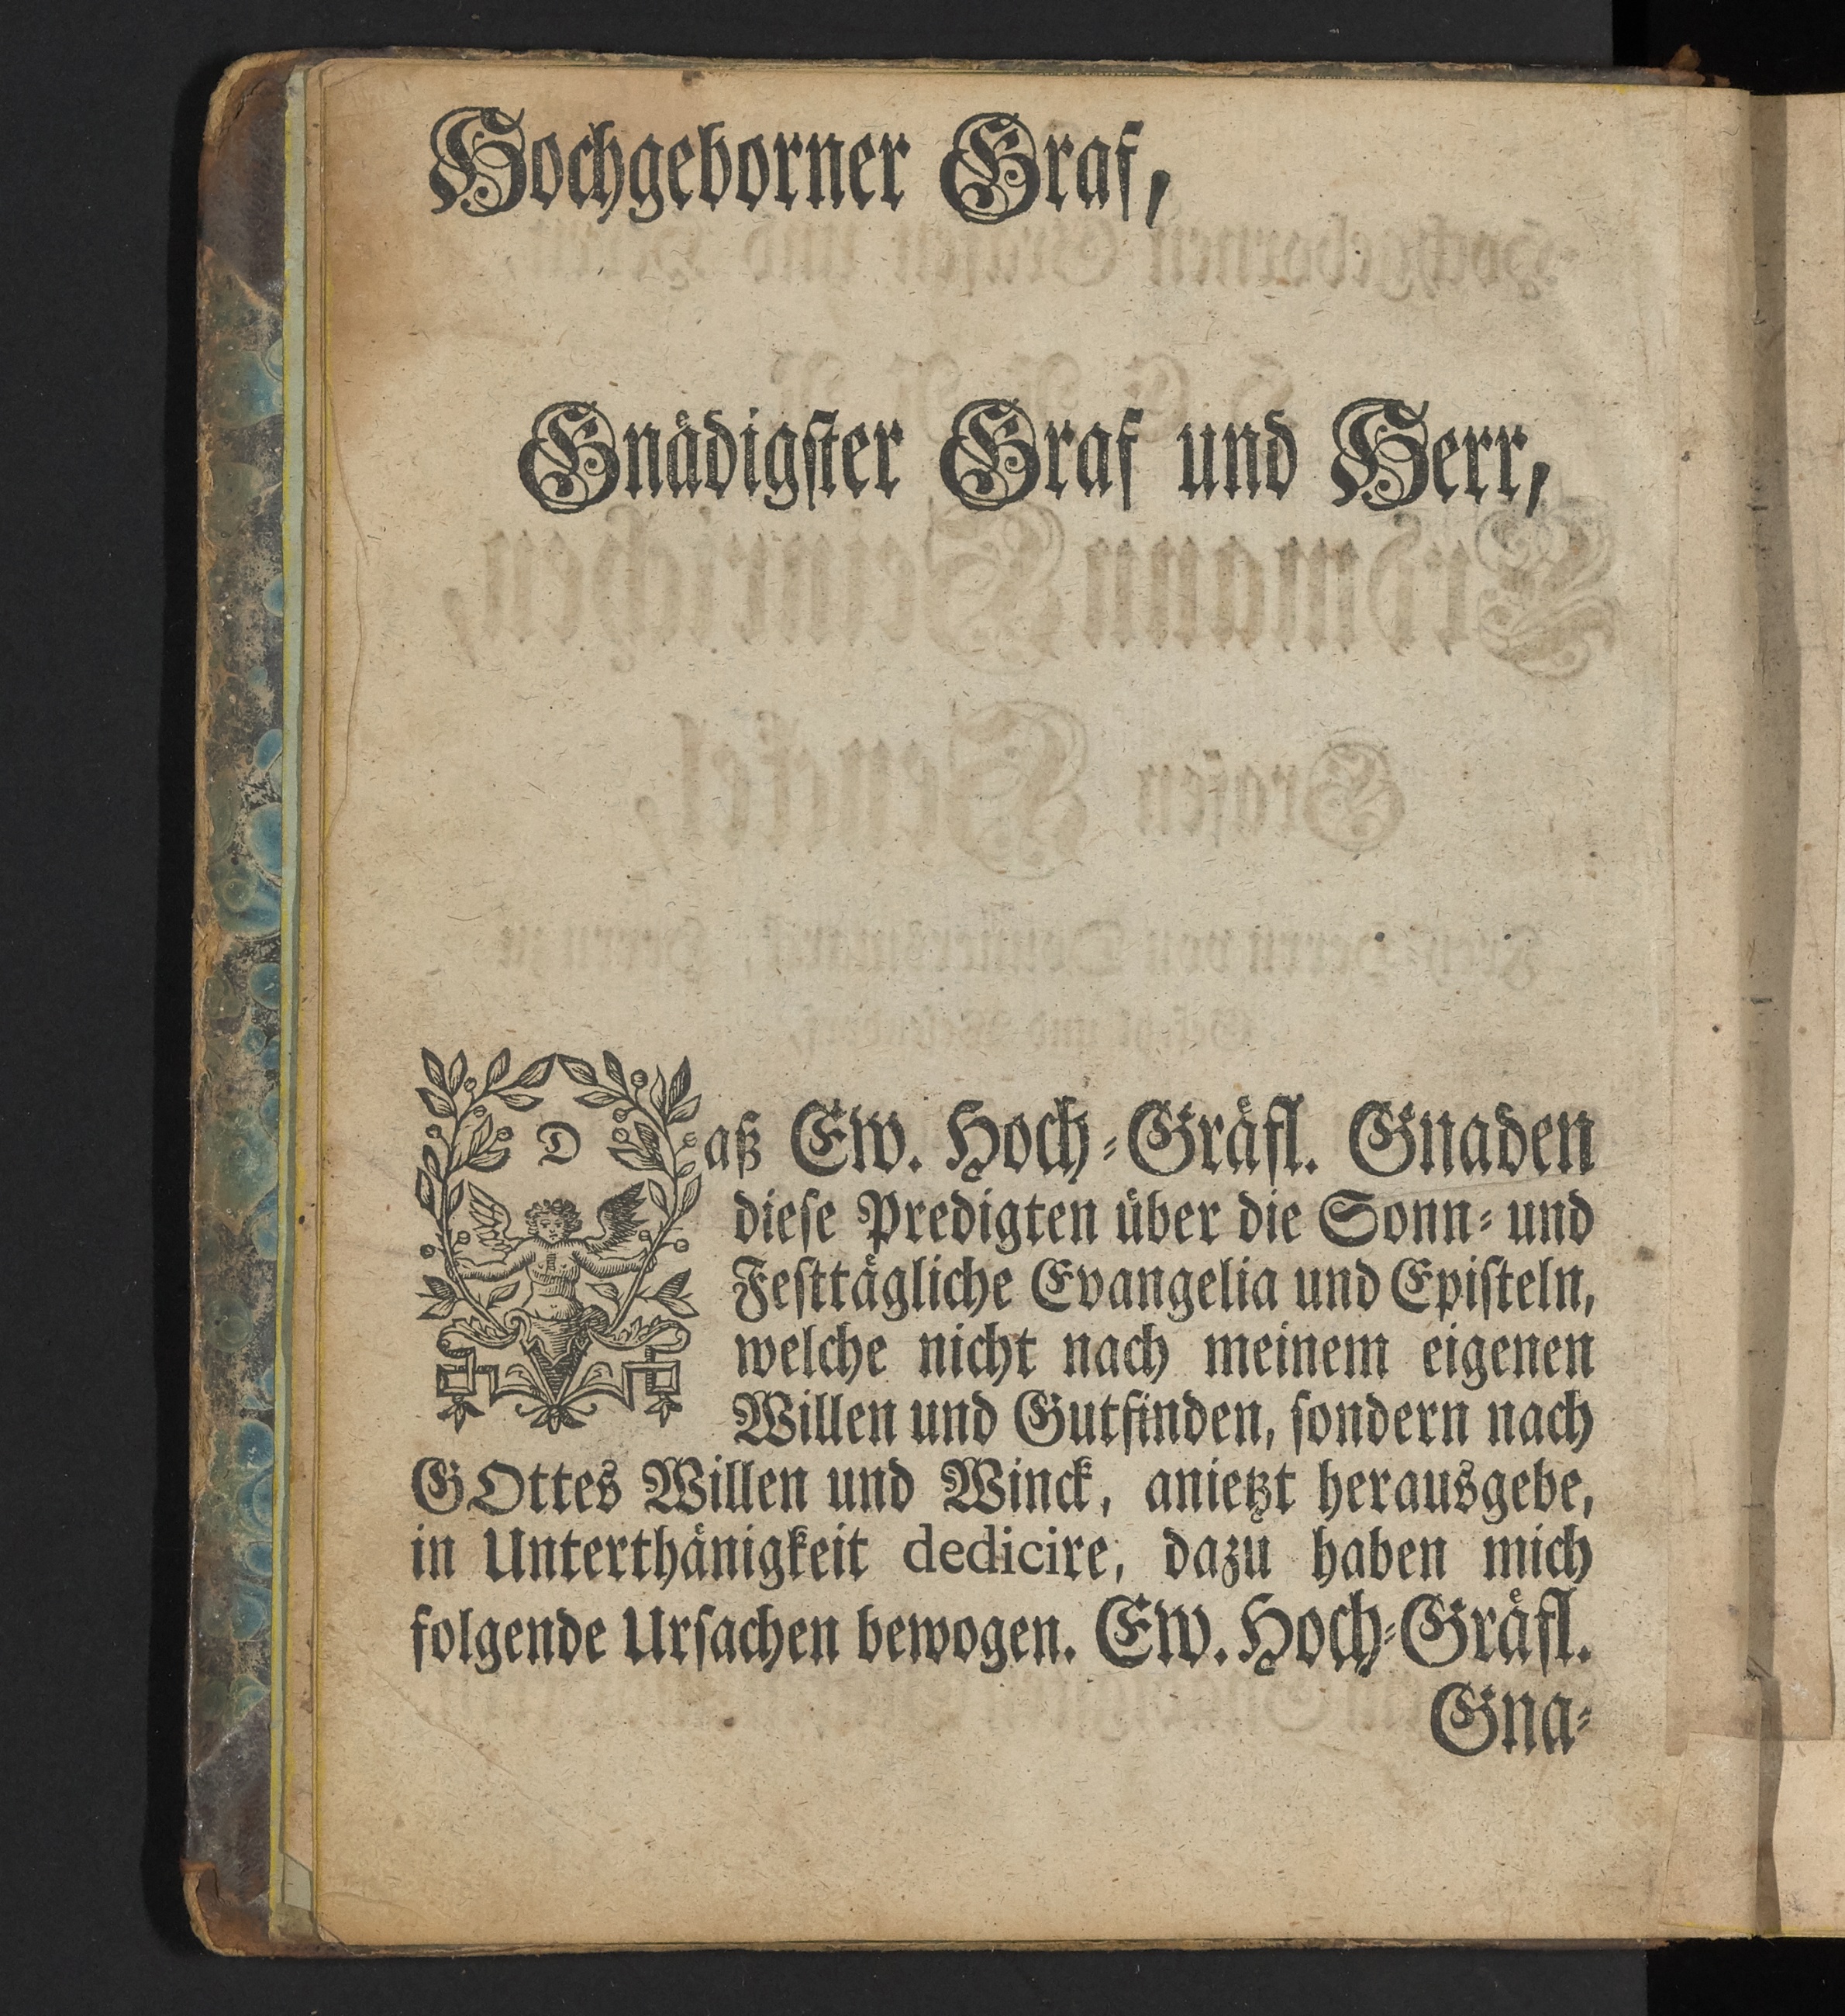 Hochgeborner Graf,
Gnädigster Graf und Herr,
Daß Ew. Hoch-Gräfl. Gnaden
diese Predigten über die Sonn- und
Festtägliche Evangelia und Episteln,
welche nicht nach meinem eigenen
Willen und Gutfinden, sondern nach
GOttes Willen und Winck, anietzt herausgebe,
in Unterthänigkeit dedicire, dazu haben mich
folgende Ursachen bewogen. Ew. Hoch-Gräfl.
Gna-